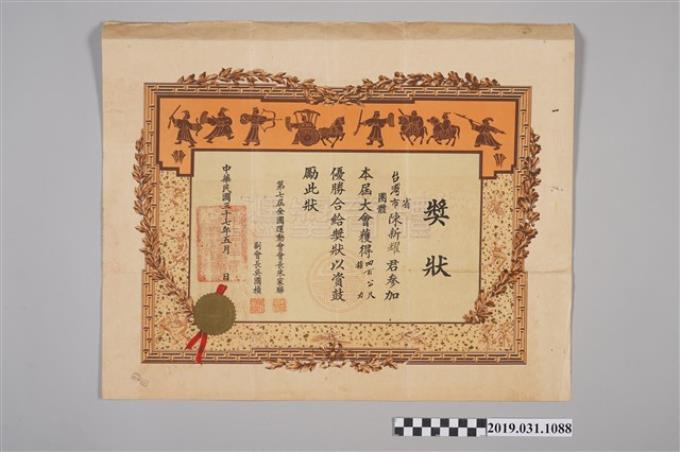 獎狀
台灣省
市
團體
陳新耀君參加
本屆大會獲得四百公尺
接力
優勝合給獎狀以資鼓
勵此狀
第七屆全國運動會會長朱家驊
副會長吳國楨
中華民國三十七年五月 日
2019.031.1088